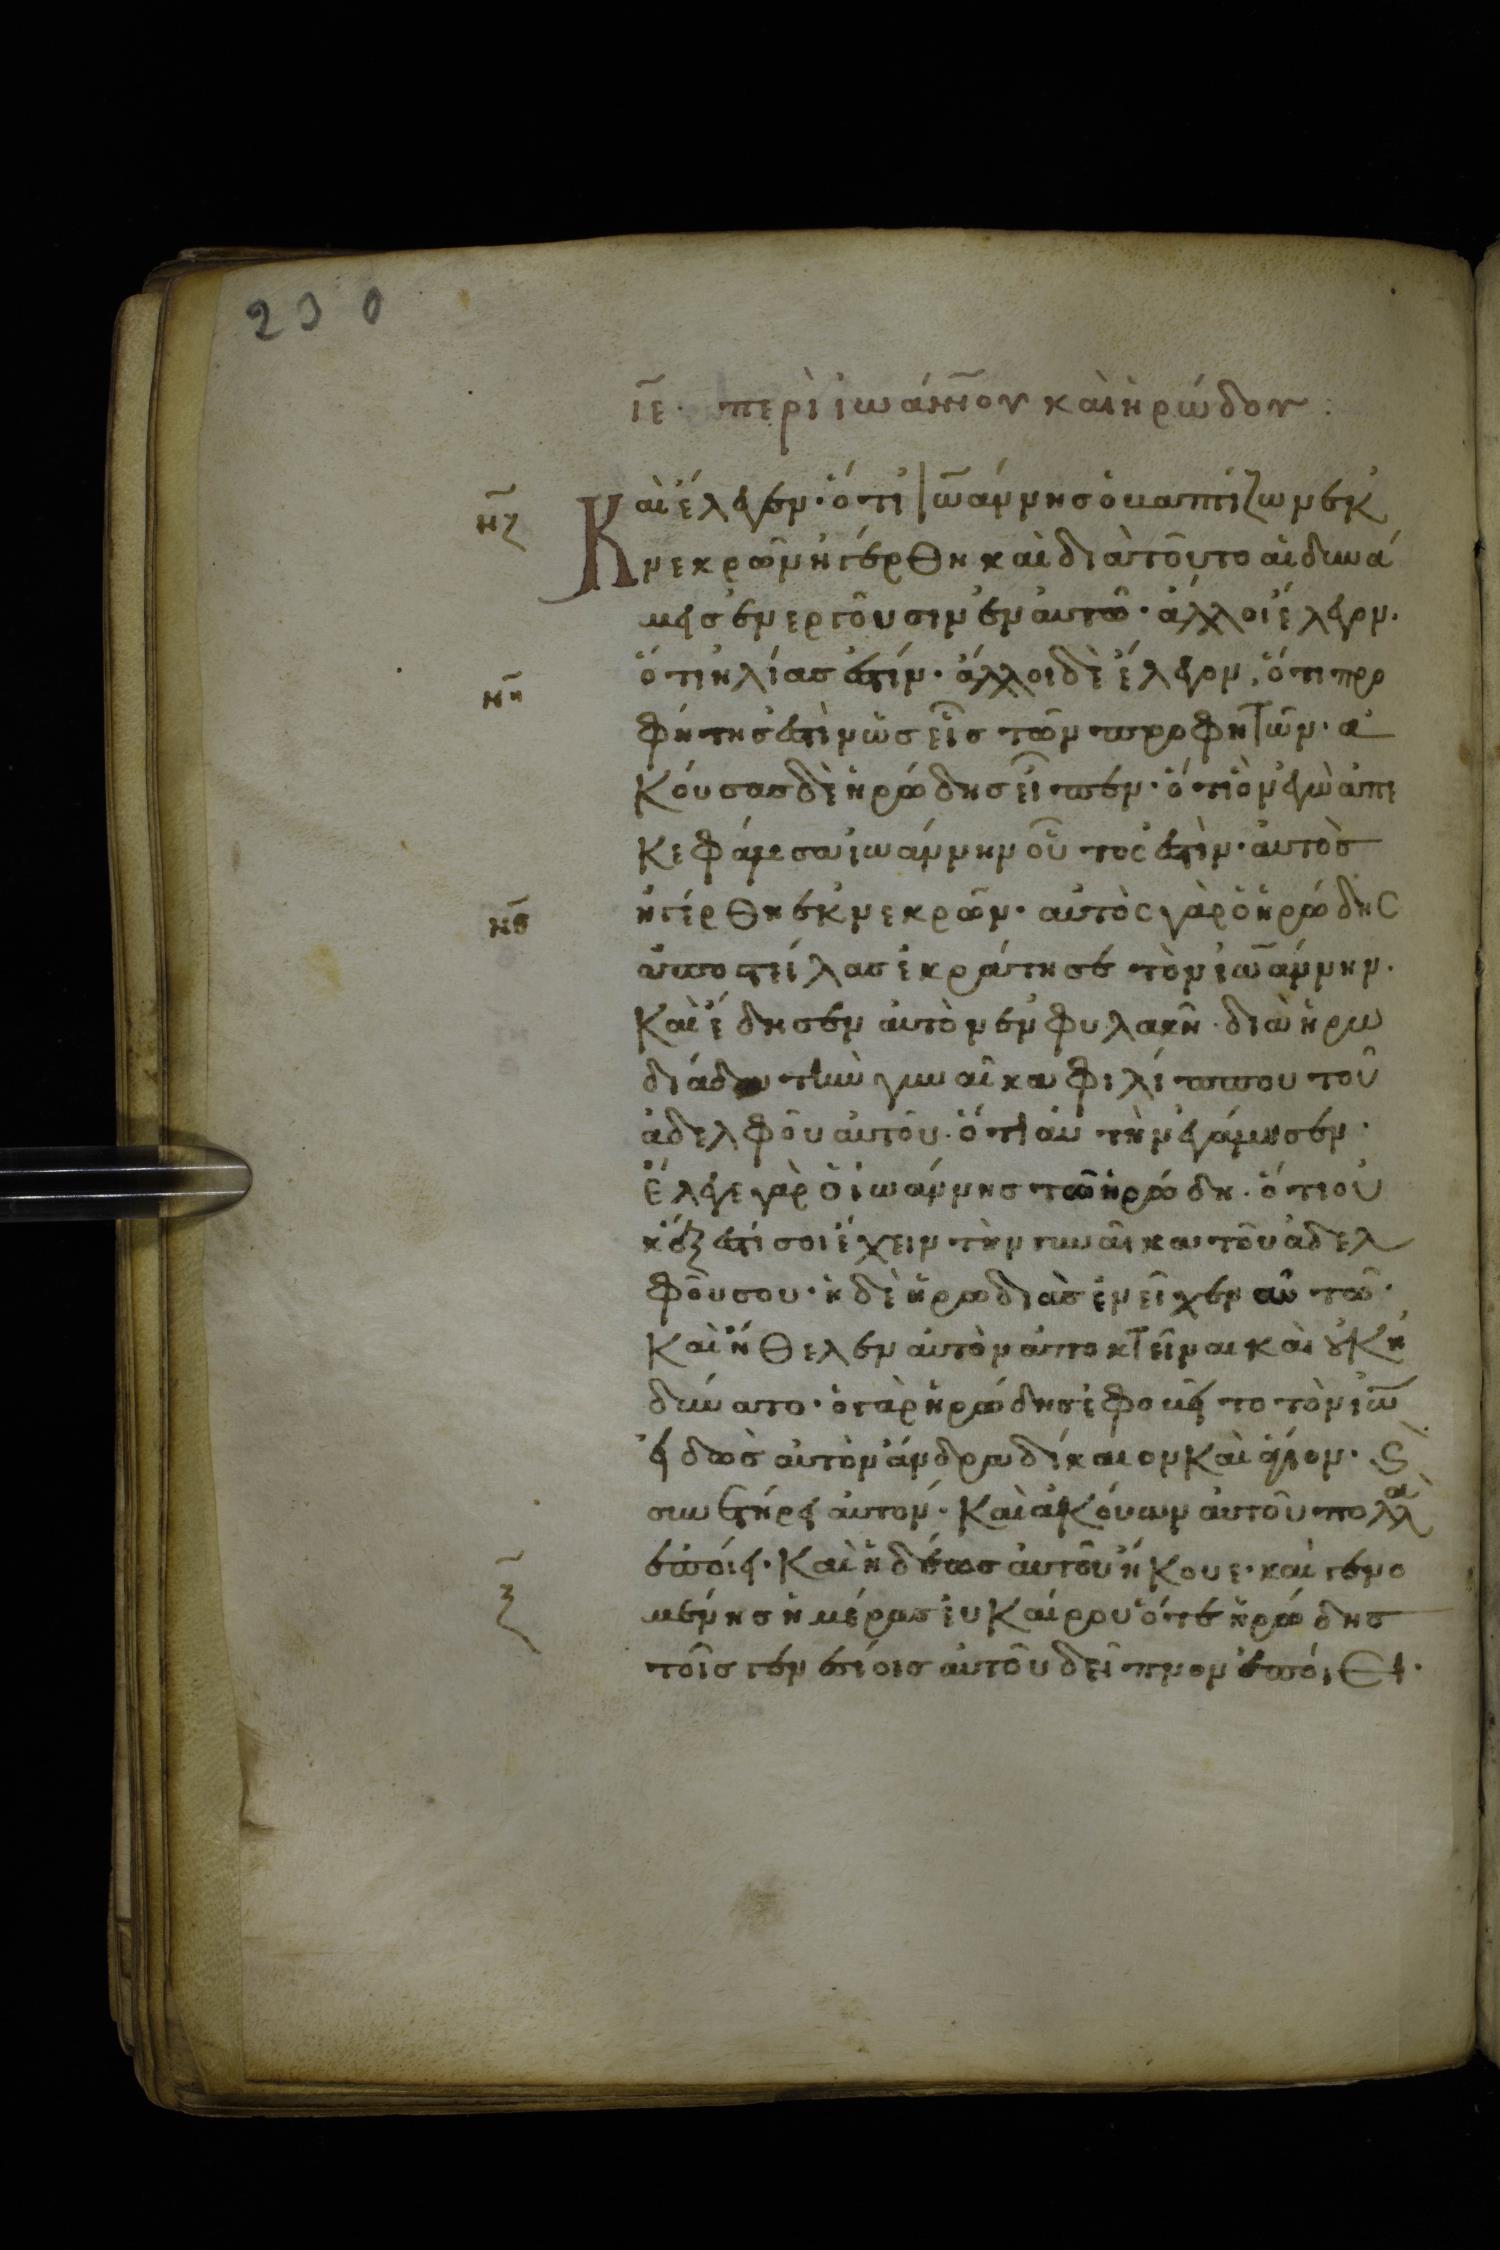 230
ιε· περὶ ἰωάννου καὶ ἡρώδου:
νζ
Καὶ ἔλεγεν· ὅτι ἰωάννησ ὁ βαπτίζων ἐκ
νεκρῶν ἠγέρθη καὶ διὰ τοῦτο αἱ δυνά
μεισ ἐνεργοῦσιν ἐν αὐτῶ· ἄλλοι ἔλεγον·
νη
ὅτι ηλίασ ἐστίν· ἄλλοι δὲ ἔλεγον, ὅτι προ
φήτησ ἐστὶν ὡσ εἷσ τῶν προφητῶν· ἀ
κούσασ δὲ ἡρώδησ εἶπεν· ὅτι ὃν ἐγὼ ἀπε
κεφάλησα ἰωάννην οὗτος ἐστὶν· αὐτὸσ
νθ
ἠγέρθη ἐκ νεκρῶν· αὐτὸς γὰρ ὁ ἡρώδης
ἀποστείλασ ἐκράτησε τὸν ἰωάννην·
Καὶ ἔδησεν αὐτὸν ἐν φυλακῆ· διὰ ἡρω
διάδα τὴν γυναῖκα φιλίππου τοῦ
ἀδελφοῦ αὐτοῦ· ὅτι αὐτὴν ἐγάμησεν·
ἔλεγε γὰρ ὁ ἰωάννησ τῶ ἡρώδη· ὅτι οὐ
κ ἔξεστί σοι ἔχειν τὴν γυναῖκα τοῦ ἀδελ
φοῦ σου· ἡ δὲ ἡρωδιὰσ ἐνεῖχεν αὐτῶ·
Καὶ ἤθελεν αὐτὸν ἀποκτεῖναι καὶ οὐκ ἠ
δύνατο· ὁ γὰρ ἡρώδησ ἐφοβεῖτο τὸν ἰω
εἰδὼσ αὐτὸν ἄνδρα δίκαιον καὶ ἅγιον· ϛ
συνετήρει αὐτόν· Καὶ ἀκούων αὐτοῦ πολλὰ
ἐποίει· Καὶ ἡδέωσ αὐτοῦ ἤκουε· καὶ γενο
ξ
μένησ ἡμέρασ εὐκαίρου ὅτε ἡρώδησ
τοῖσ γενεσίοισ αὐτοῦ δεῖπνον ἐποίει·